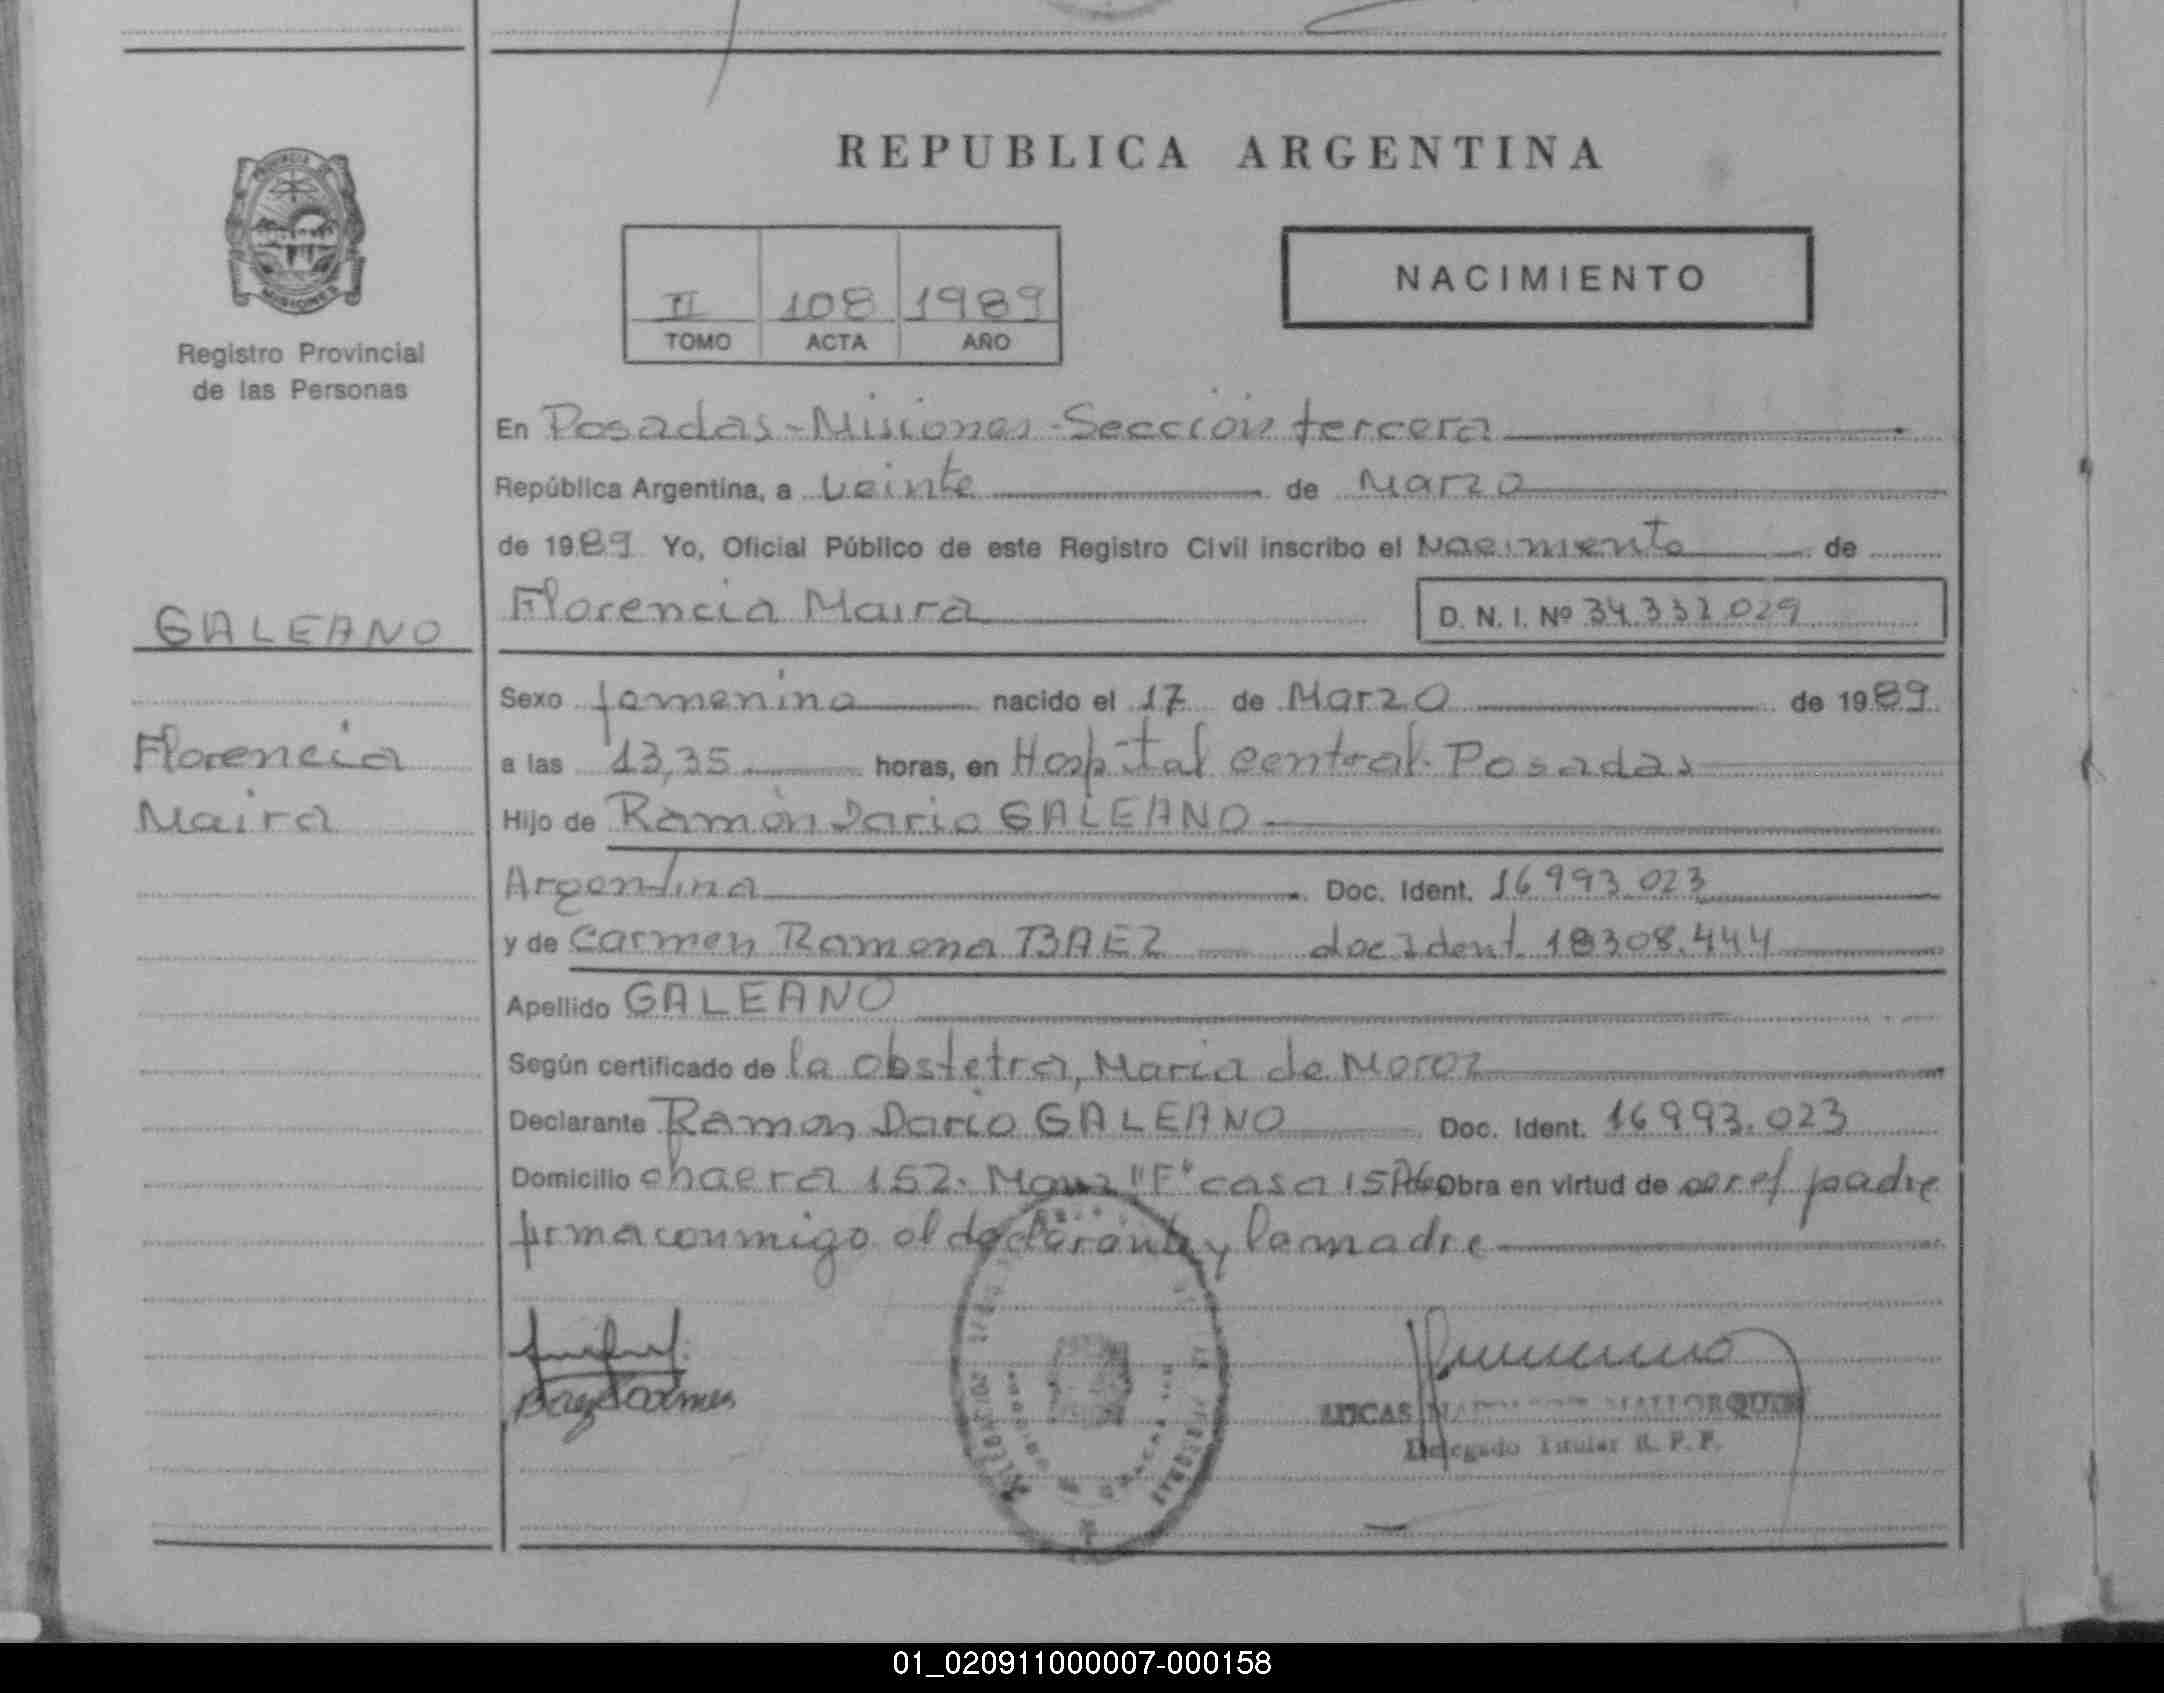 REPUBLICA ARGENTINA
Registro Provincial
de las Personas
II 108 1989
TOMO ACTA AÑO
NACIMIENTO
En Posadas - Misiones - Sección tercera
República Argentina, a veinte de Marzo
de 1989 Yo, Oficial Público de este Registro Civil inscribo el Nacimiento de
GALEANO
Florencia Maira D. N. I. Nº 34.332.029
Sexo femenino nacido el 17 de Marzo de 1989
Florencia
a las 13,35 horas, en Hospital Central - Posadas
Maira
Hijo de Ramón Dario GALEANO
Argentina Doc. Ident. 16 993.023
y de Carmen Ramona BAEZ doc Ident. 18308.444
Apellido GALEANO
Según certificado de la obstetra, Maria de Moroz
Declarante Ramon Dario GALEANO Doc. Ident. 16993.023
Domicilio chacra 152. Manz "F" casa 15 Obra en virtud de ser el padre
firma conmigo el declarante y la madre
Baez Carmen
LUCAS MALLORQUIN
Delegado Titular R. P. P.
01_020911000007-000158